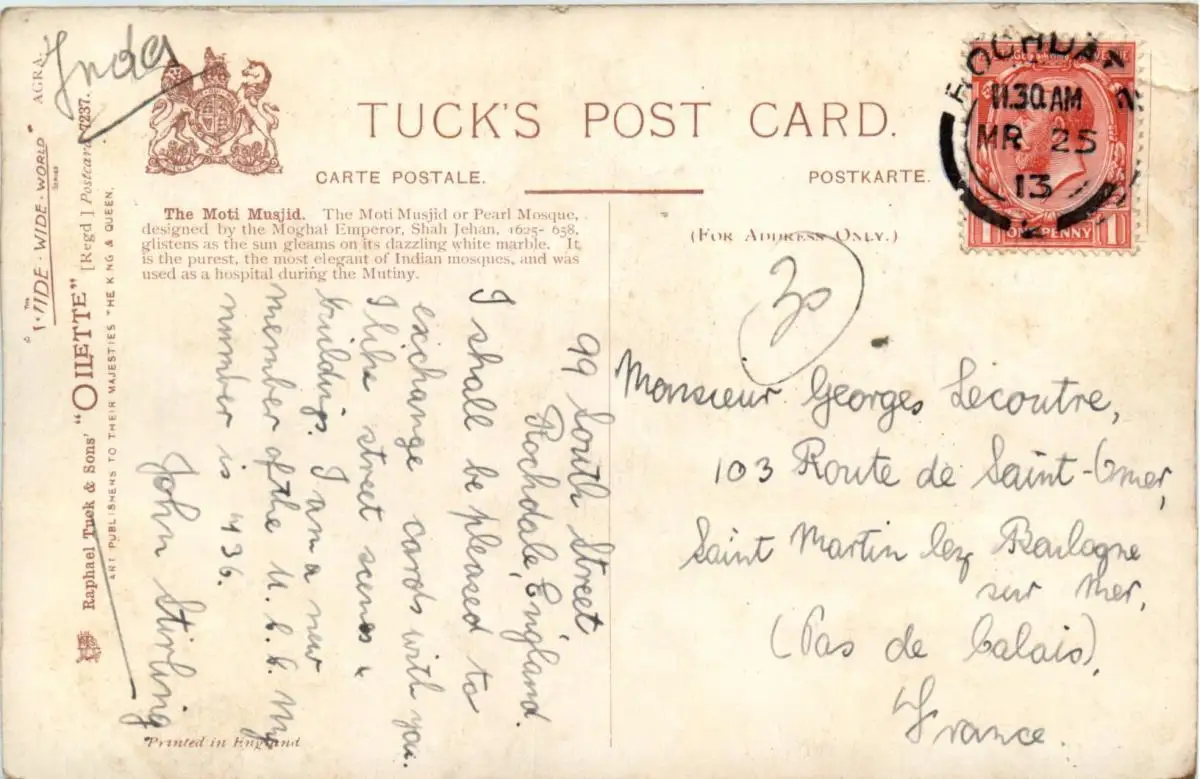 India
TUCK'S POST CARD.
CARTE POSTALE.
POSTKARTE.
The Moti Musjid. The Moti Musjid or Pearl Mosque,
designed by the Moghal Emperor, Shah Jehan,
glistens as the sun gleams on its dazzling white marble. It
is the purest, the most elegant of Indian mosques, and was
used as a hospital during the Mutiny.
(FOR ADDRESS ONLY.)
ROCHDALE
11.30 AM
MR 25
13
1 ONE PENNY 1
30
AGRA.
THE
"WIDE-WORLD"
SERIES
Raphael Tuck & Sons' "OILETTE" [Regd.] Postcard 7237.
ART PUBLISHERS TO THEIR MAJESTIES THE KING & QUEEN.
99 South Street
Rochdale, England.
I shall be pleased to
exchange cards with you.
I like street scenes &
buildings. I am a new
member of the My
number is 436.
John Stirling
Monsieur Georges Lecoutre,
103 Route de Saint-Omer,
Saint Martin lez Boulogne
sur Mer,
(Pas de Calais),
France.
Printed in England